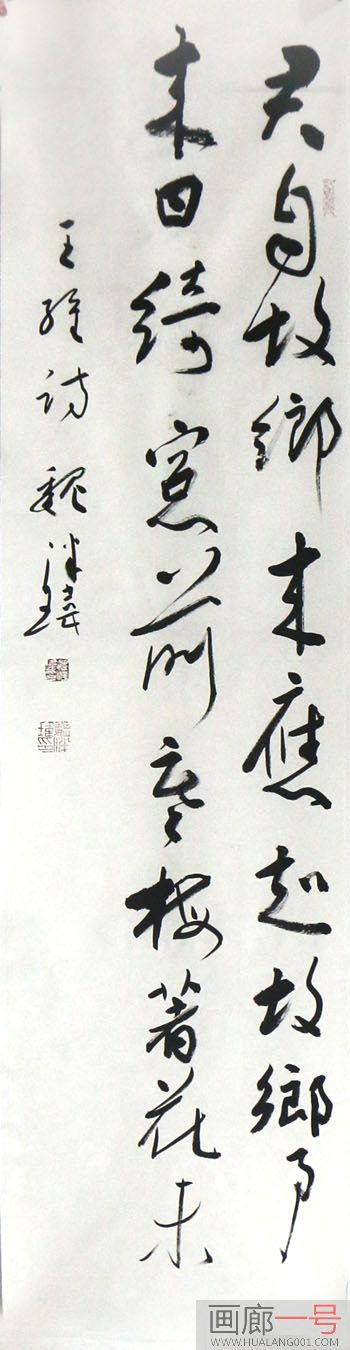 君自故鄉来應知故鄉事
来日綺窓前寒梅著花未
王維詩 魏
画廊一号
WWW.HUALANG001.COM